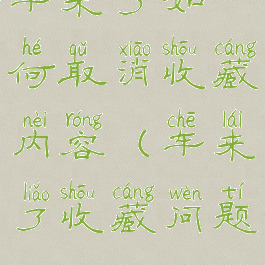 车来了如
hé qǔ xiāo shōu cáng
何取消收藏
nèi róng chē lái
内容（车来
liǎo shōu cáng wèn tí
了收藏问题